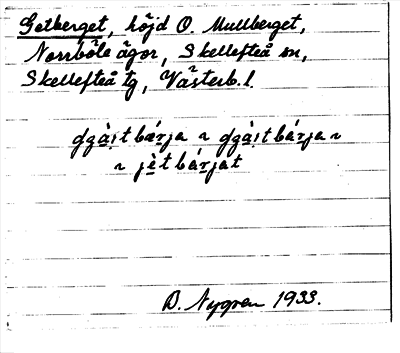 Getberget, höjd O. Mullberget,
Norrböle ägor, Skellefteå sn,
Skellefteå tg, Västerb. l.
gzä̀ṣtbæ̀rja ~ gzä̀ṣtbárja ~
~ jètbárjat
D. Nygren 1933.